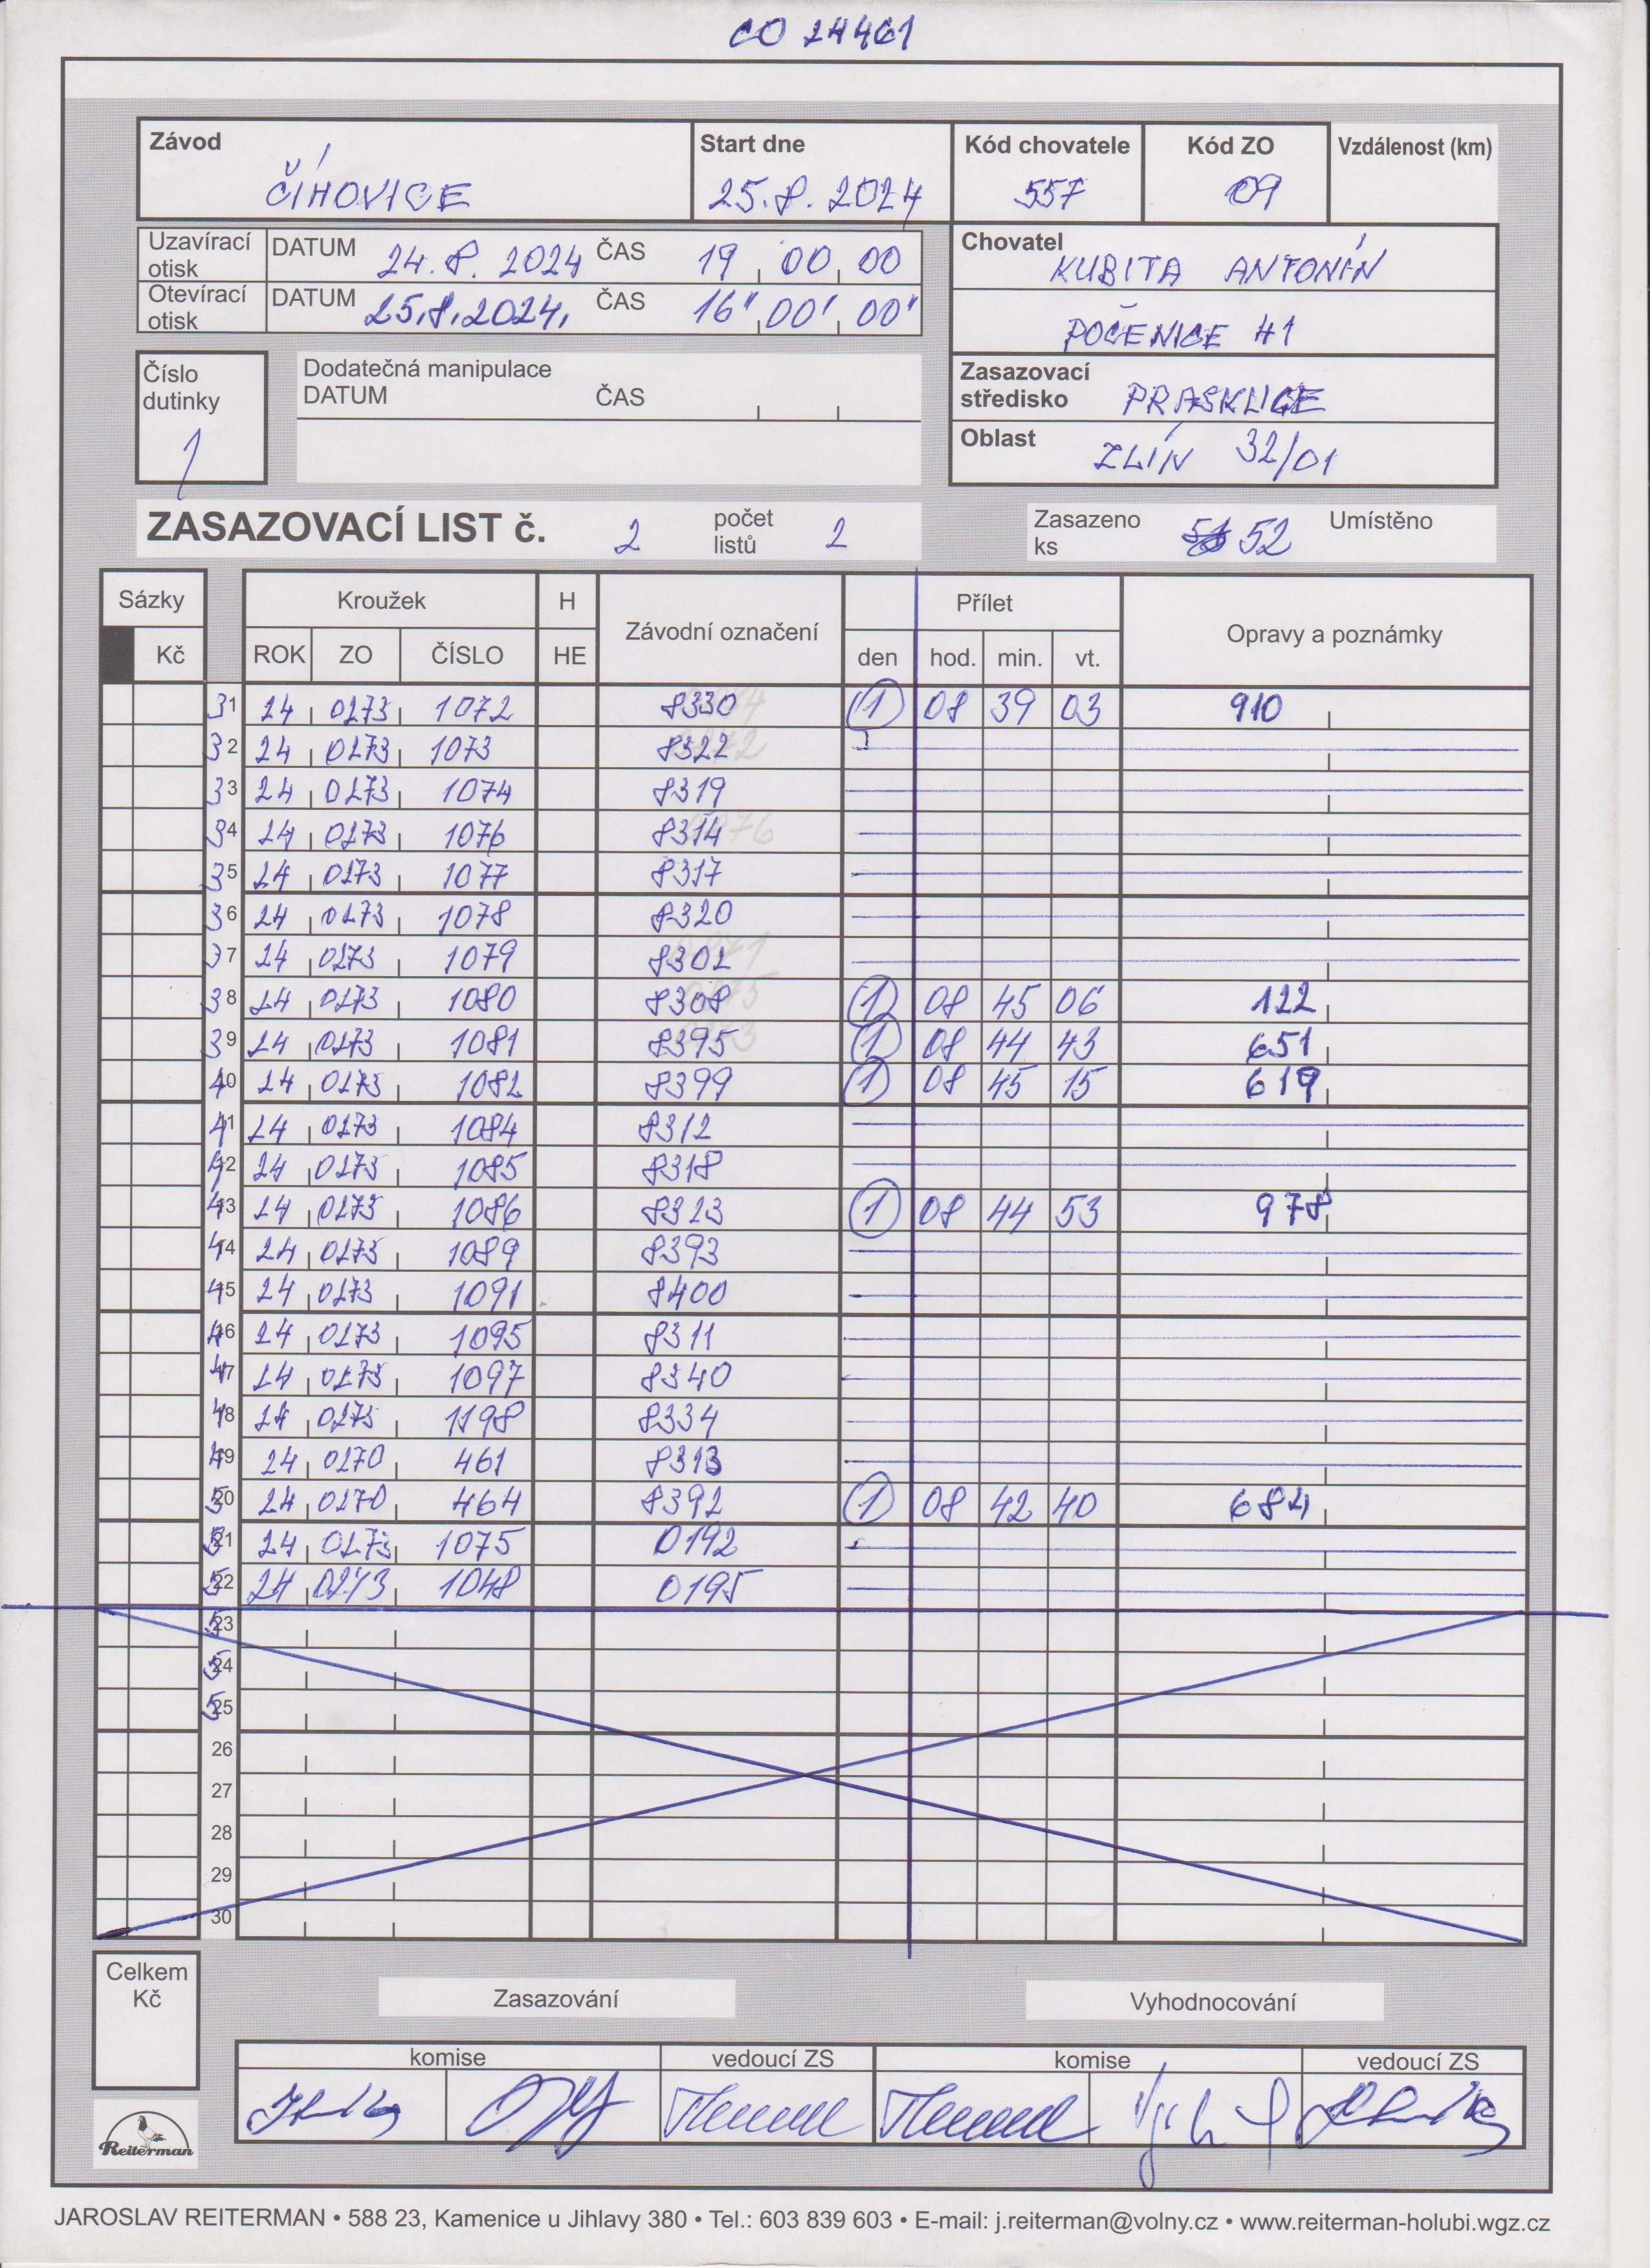 CO 24461
Závod Start dne Kód chovatele Kód ZO Vzdálenost (km)
ČÍHOVICE 25.8.2024 557 09
Uzavírací otisk DATUM 24.8.2024 ČAS 19 00 00
Otevírací otisk DATUM 25.8.2024. ČAS 16" 00' 00"
Chovatel KUBITA ANTONÍN
POČENICE 41
Číslo dutinky 1
Dodatečná manipulace
DATUM ČAS
Zasazovací středisko PRASKLICE
Oblast ZLÍN 32/01
ZASAZOVACÍ LIST č. 2 počet listů 2 Zasazeno ks 52 Umístěno
Sázky Kroužek H Závodní označení Přílet Opravy a poznámky
Kč ROK ZO ČÍSLO HE den hod. min. vt.
31 24 0173 1072 8330 1 08 39 03 910
32 24 0173 1073 8322
33 24 0173 1074 8319
34 24 0173 1076 8314
35 24 0173 1077 8317
36 24 0173 1078 8320
37 24 0173 1079 8301
38 24 0173 1080 8308 1 08 45 06 122
39 24 0173 1081 8395 1 08 44 43 651
40 24 0173 1082 8399 1 08 45 15 619
41 24 0173 1084 8312
42 24 0173 1085 8318
43 24 0173 1086 8323 1 08 44 53 978
44 24 0173 1089 8393
45 24 0173 1091 8400
46 24 0173 1095 8311
47 24 0173 1097 8340
48 24 0173 1198 8334
49 24 0170 461 8313
50 24 0170 464 8392 1 08 42 40 684
51 24 0173 1075 0192
52 24 0273 1048 0195
53
54
55
26
27
28
29
30
Celkem Kč
Zasazování Vyhodnocování
komise vedoucí ZS komise vedoucí ZS
Reiterman
JAROSLAV REITERMAN • 588 23, Kamenice u Jihlavy 380 • Tel.: 603 839 603 • E-mail: j.reiterman@volny.cz • www.reiterman-holubi.wgz.cz